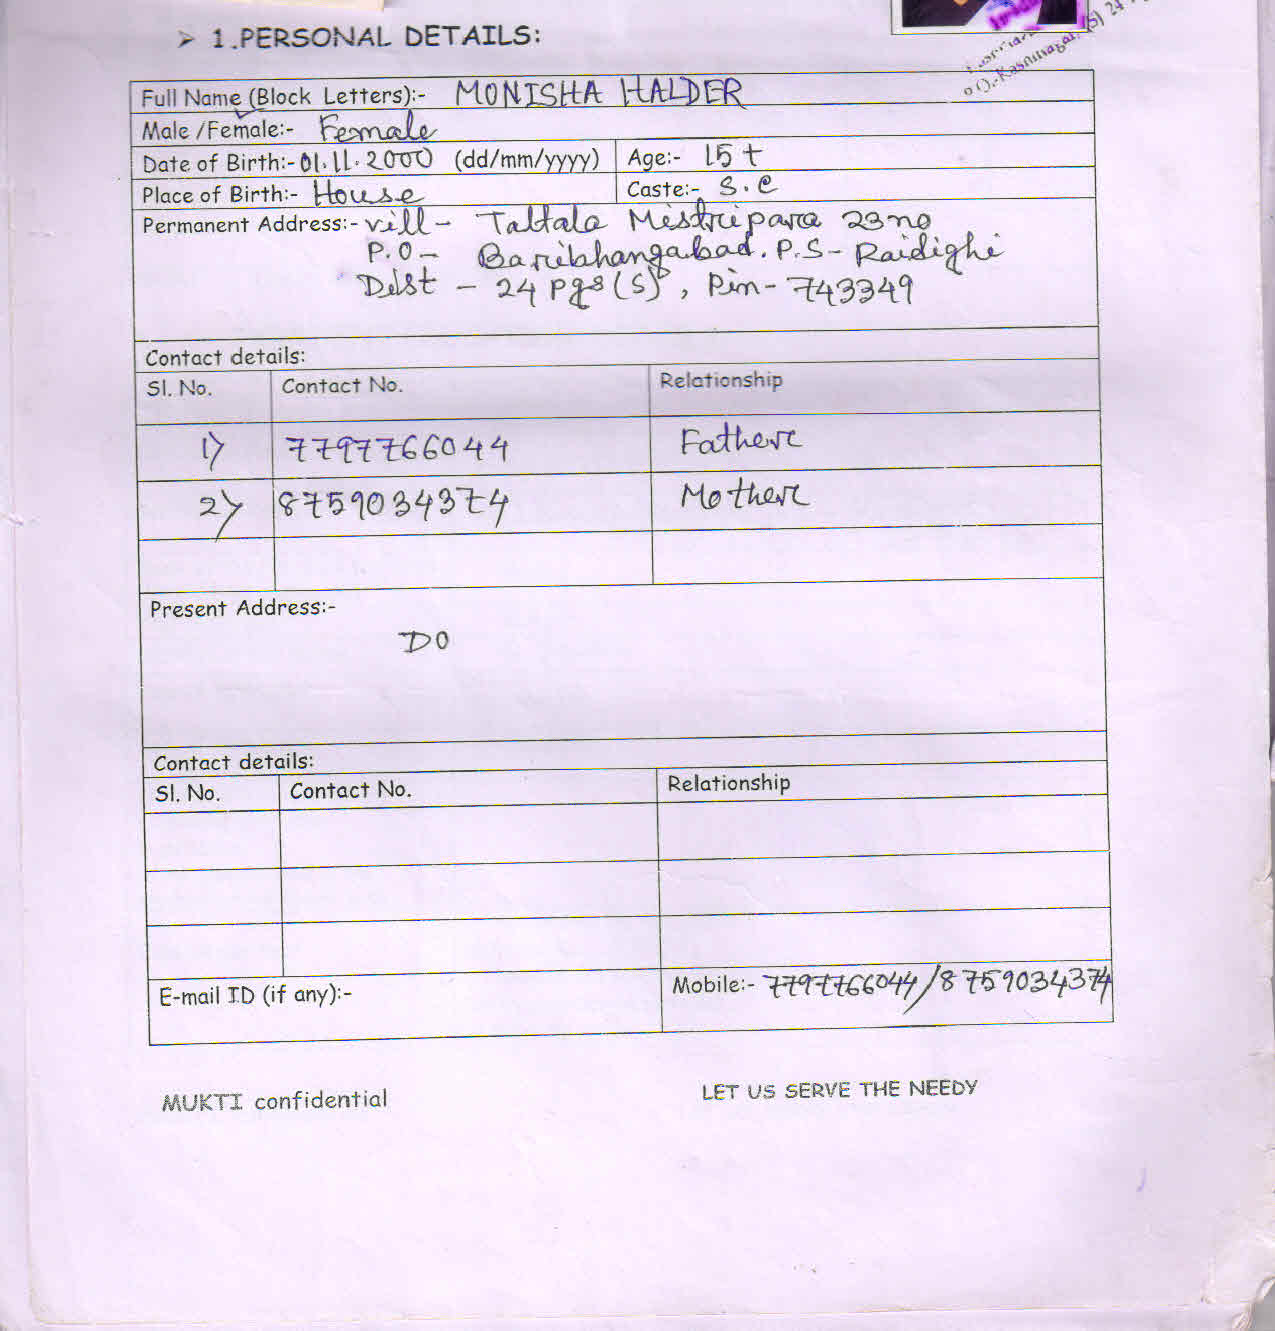 ➤ 1.PERSONAL DETAILS:
Full Name (Block Letters):- MONISHA HALDER
Male /Female:- Female
Date of Birth:- 01.11.2000 (dd/mm/yyyy) Age:- 15 +
Place of Birth:- House Caste:- S.C
Permanent Address:- vill - Taltala Mistripara 23 no
P.O - Baribhangabad. P.S - Raidighi
Dist - 24 pgs (S), Pin - 743349
Contact details:
Sl. No. Contact No. Relationship
1) 7797766044 Father
2) 8759034374 Mother
Present Address:-
DO
Contact details:
Sl. No. Contact No. Relationship
E-mail ID (if any):- Mobile:- 7797766044/8759034374
MUKTI confidential LET US SERVE THE NEEDY